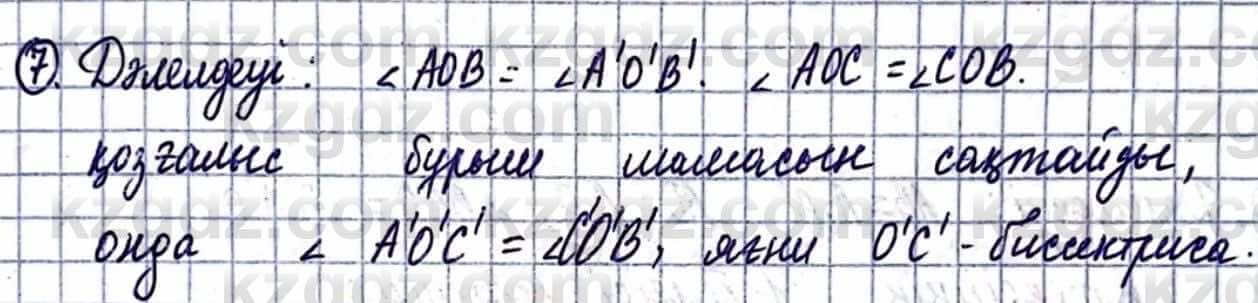 ⑦. Дәлелдеуі: ∠AOB = ∠A'O'B'. ∠AOC = ∠COB.
қозғалыс бұрыш шамасын сақтайды,
онда ∠ A'O'C' = ∠C'O'B', яғни O'C' - биссектриса.